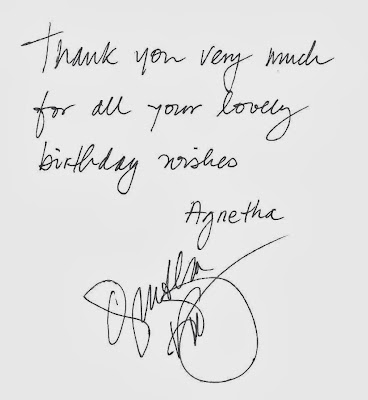 Thank you very much
for all your lovely
birthday wishes
Agnetha